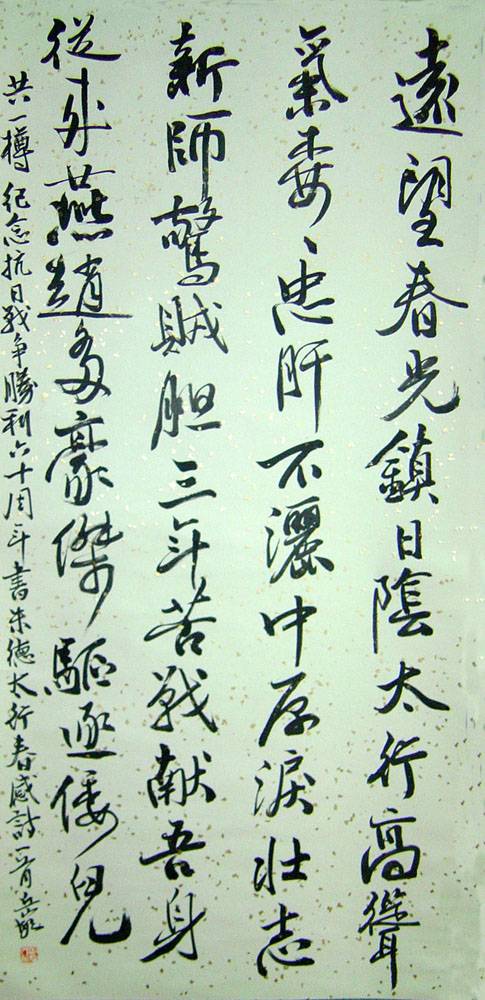 遠望春光鎮日陰太行高聳
氣森々忠肝不灑中原淚壯志
新師驚賊胆三年苦戰献吾身
從來燕趙多豪傑驅逐倭兒
共一樽 紀念抗日戰争勝利六十周年書朱德太行春感詩一首